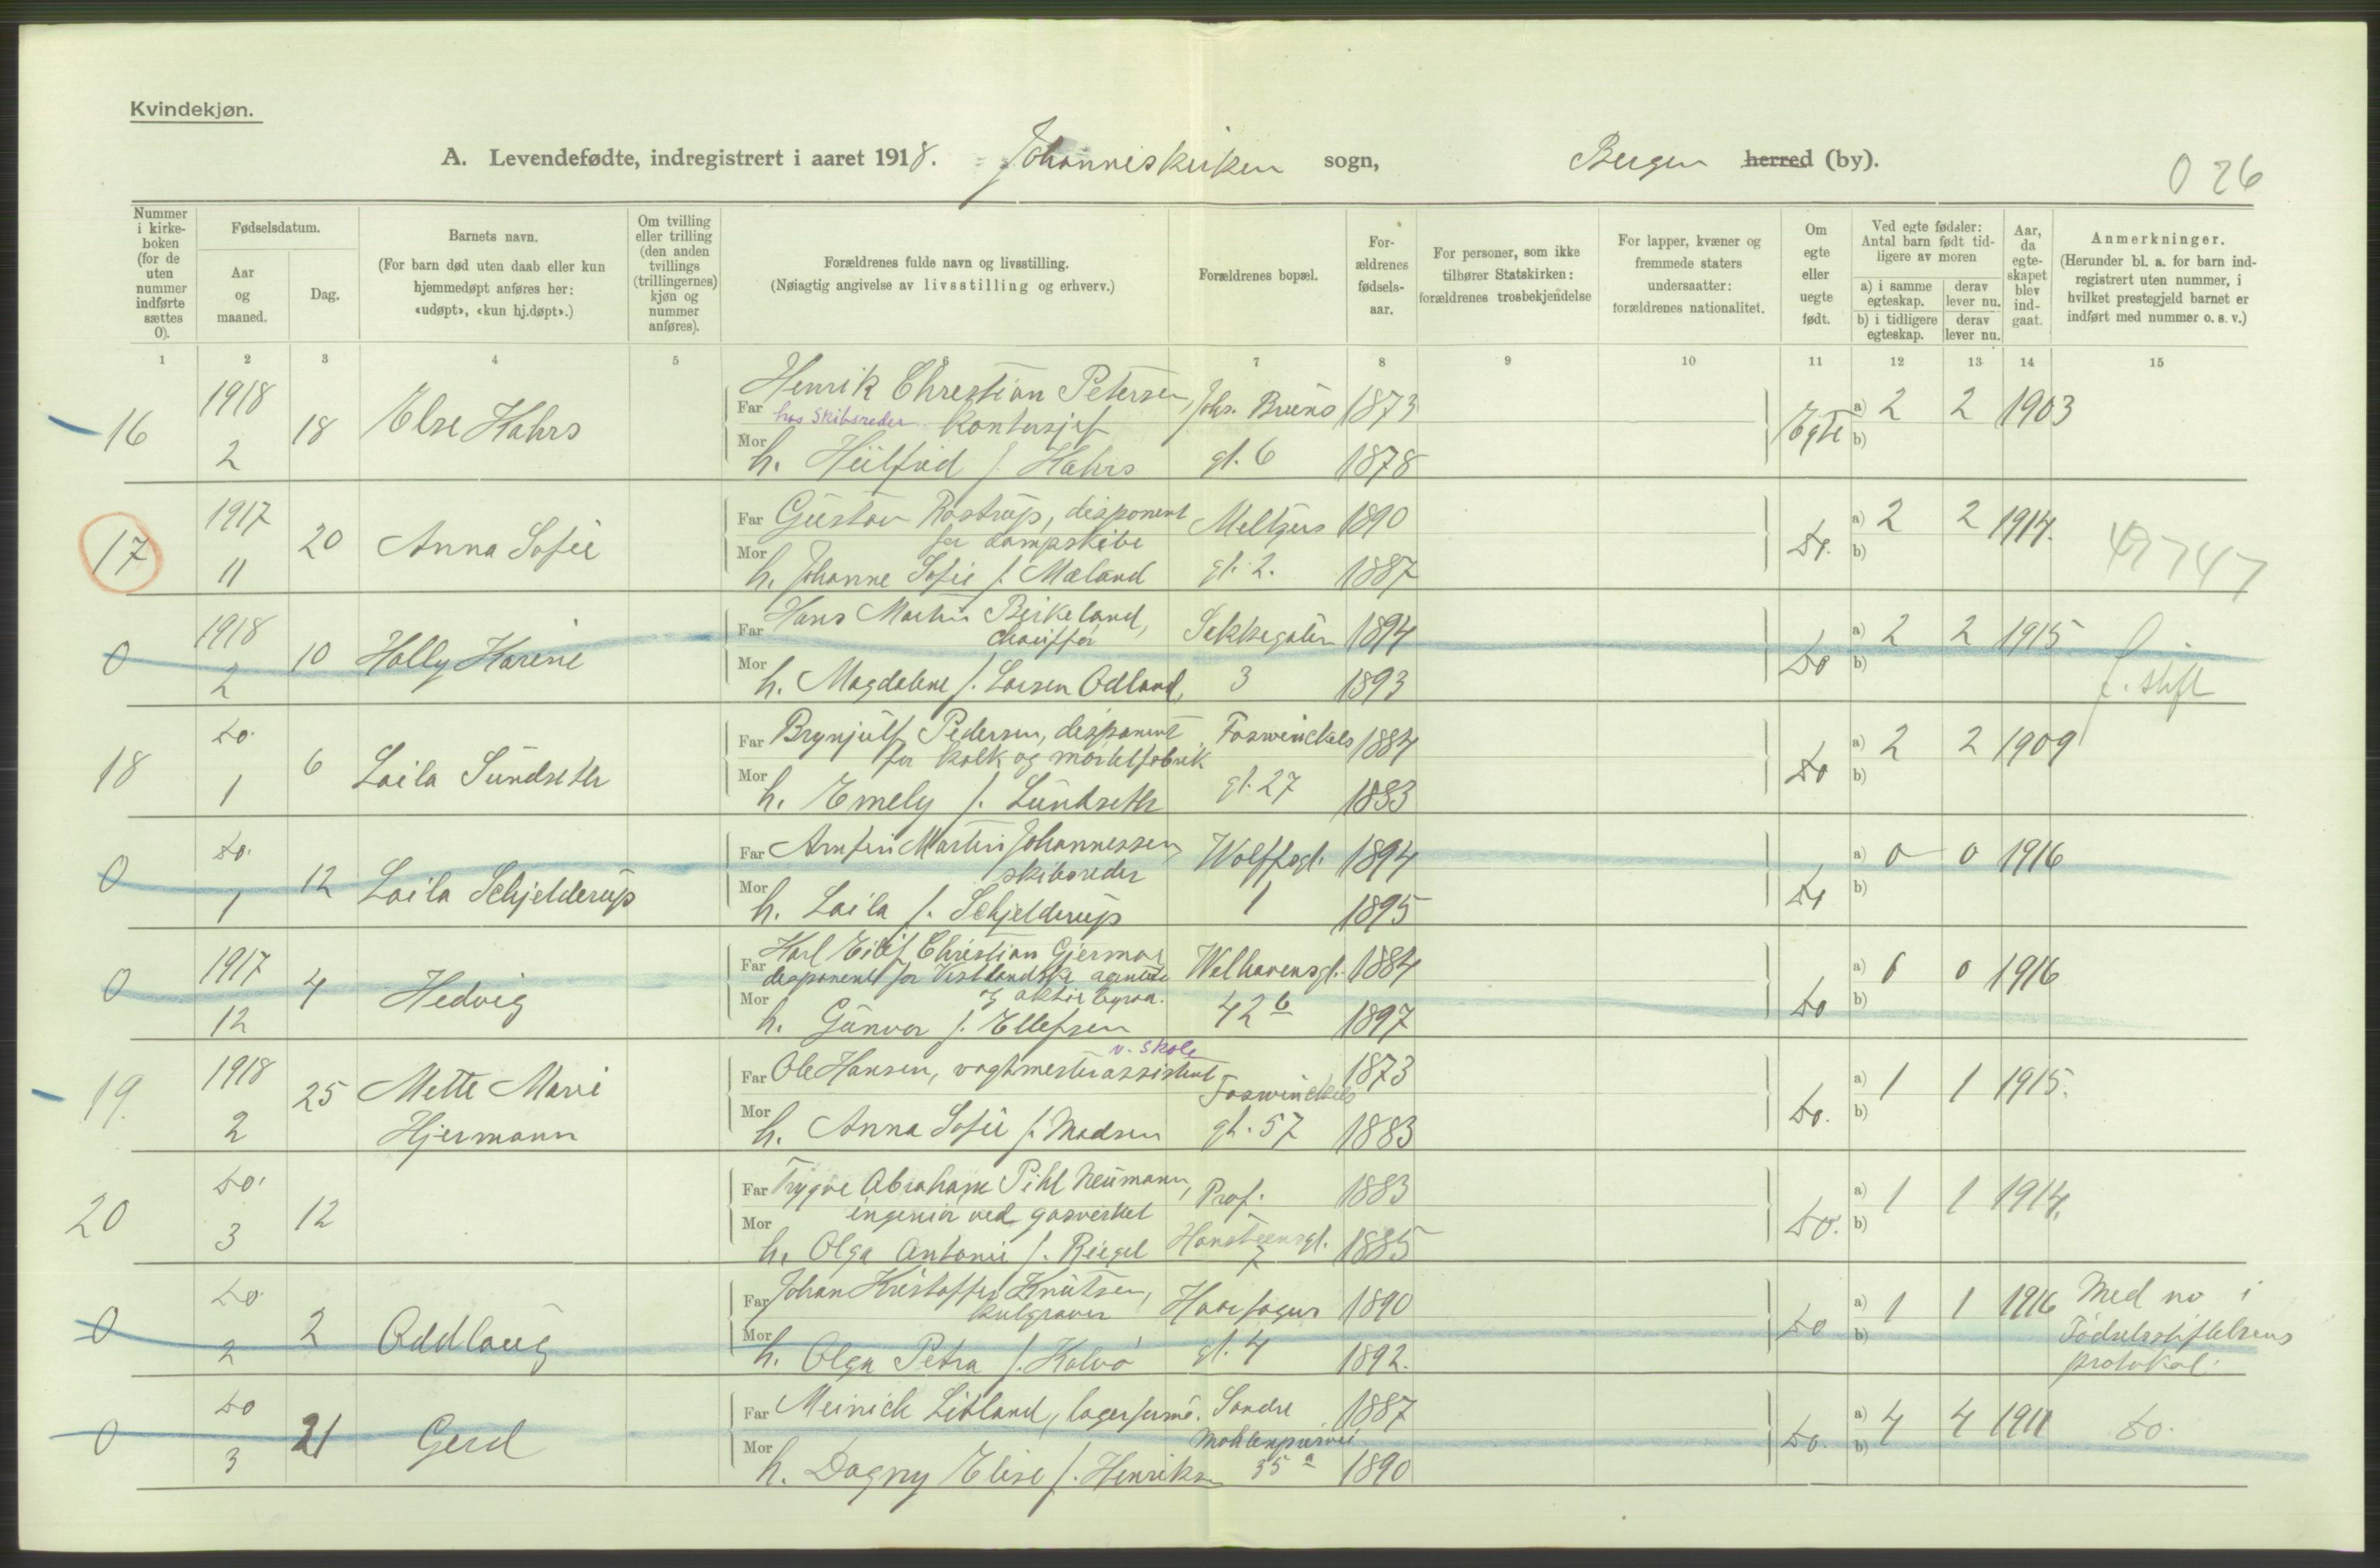 Kvindekjøn.
A. Levendefødte, indregistrert i aaret 1918. Johanneskirken sogn, Bergen herred (by).
026
Nummer i kirkeboken (for de uten nummer indførte sættes 0).
Fødselsdatum.
Aar og maaned.
Dag.
Barnets navn.
(For barn død uten daab eller kun hjemmedøpt anføres her: «udøpt», «kun hj.døpt».)
Om tvilling eller trilling (den anden tvillings (trillingernes) kjøn og nummer anføres).
Forældrenes fulde navn og livsstilling.
(Nøiagtig angivelse av livsstilling og erhverv.)
Forældrenes bopæl.
Forældrenes fødselsaar.
For personer, som ikke tilhører Statskirken: forældrenes trosbekjendelse
For lapper, kvæner og fremmede staters undersaatter: forældrenes nationalitet.
Om egte eller uegte født.
Ved egte fødsler: Antal barn født tidligere av moren
a) i samme egteskap. derav lever nu.
b) i tidligere egteskap. derav lever nu.
Aar, da egteskapet blev indgaat.
Anmerkninger.
(Herunder bl. a. for barn indregistrert uten nummer, i hvilket prestegjeld barnet er indført med nummer o. s. v.)
1 2 3 4 5 6 7 8 9 10 11 12 13 14 15
16 1918 2 18 Else Kahrs
Far Henrik Christian Petersen, hos Skibsreder Kontorsjef Johs. Bruns 1873
Mor h. f. Kahrs gt. 6 1878
Egte a) 2 2 1903 b)
17 1917 11 20 Anna Sofie
Far Gustav Rostrup, disponent for dampskibe Meltzers 1890
Mor h. Johanne Sofie f. Mæland gt. 2. 1887
Do. a) 2 2 1914. b)
49747
0 1918 2 10 Holly Karine
Far Hans Martin Birkeland, chauffør Sekkegaten 1894
Mor h. Magdalene f. Larsen Odland, 3 1893
Do a) 2 2 1915 b)
f. stift
18 Do. 1 6 Laila Sundseth
Far Brynjulf Pedersen, disponent for kalk og mørtelfabrik Foswinckels 1884
Mor h. Emely f. Sundseth gt. 27 1883
Do a) 2 2 1909 b)
0 Do. 1 12 Laila Schjelderup
Far Arnfin Martin Johannessen, skibsreder Wolffsgt. 1894
Mor h. Laila f. Schjelderup 1 1895
Do a) 0 0 1916 b)
0 1917 12 4 Hedvig
Far Karl Eilif Christian Gjermoe disponent for Vestlandske agentur og aktie Welhavensgt. 1884
Mor h. Gunvor f. Ellefsen 42 b 1897
Do a) 0 0 1916 b)
19. 1918 2 25 Mette Marie Hjermann
Far Ole Hansen, vagtmesterassistent v. skole Foswinckels 1873
Mor h. Anna Sofie f. Madsen gt. 57 1883
Do. a) 1 1 1915. b)
20 Do. 3 12
Far Trygve Abraham Pihl Neumann, ingeniør ved gasverket Prof. 1883
Mor h. Olga Antonie f. Riegel Hansteensgt. 7 1885
Do. a) 1 1 1914. b)
0 Do. 2 2 Oddlaug
Far Johan Kristoffer Knutsen, kulgraver Hare 1890
Mor h. Olga Petra f. Kalvø gt. 4 1892.
Do a) 1 1 1916 b)
Med no i Fødselsstiftelsens protokol.
0 Do 3 21 Gerd
Far Meinich Litland, lagerform. Søndre 1887
Mor h. Dagny Elise f. Henriksen Møhlenprisvei 35 a 1890
Do. a) 4 4 1911 b) Do.